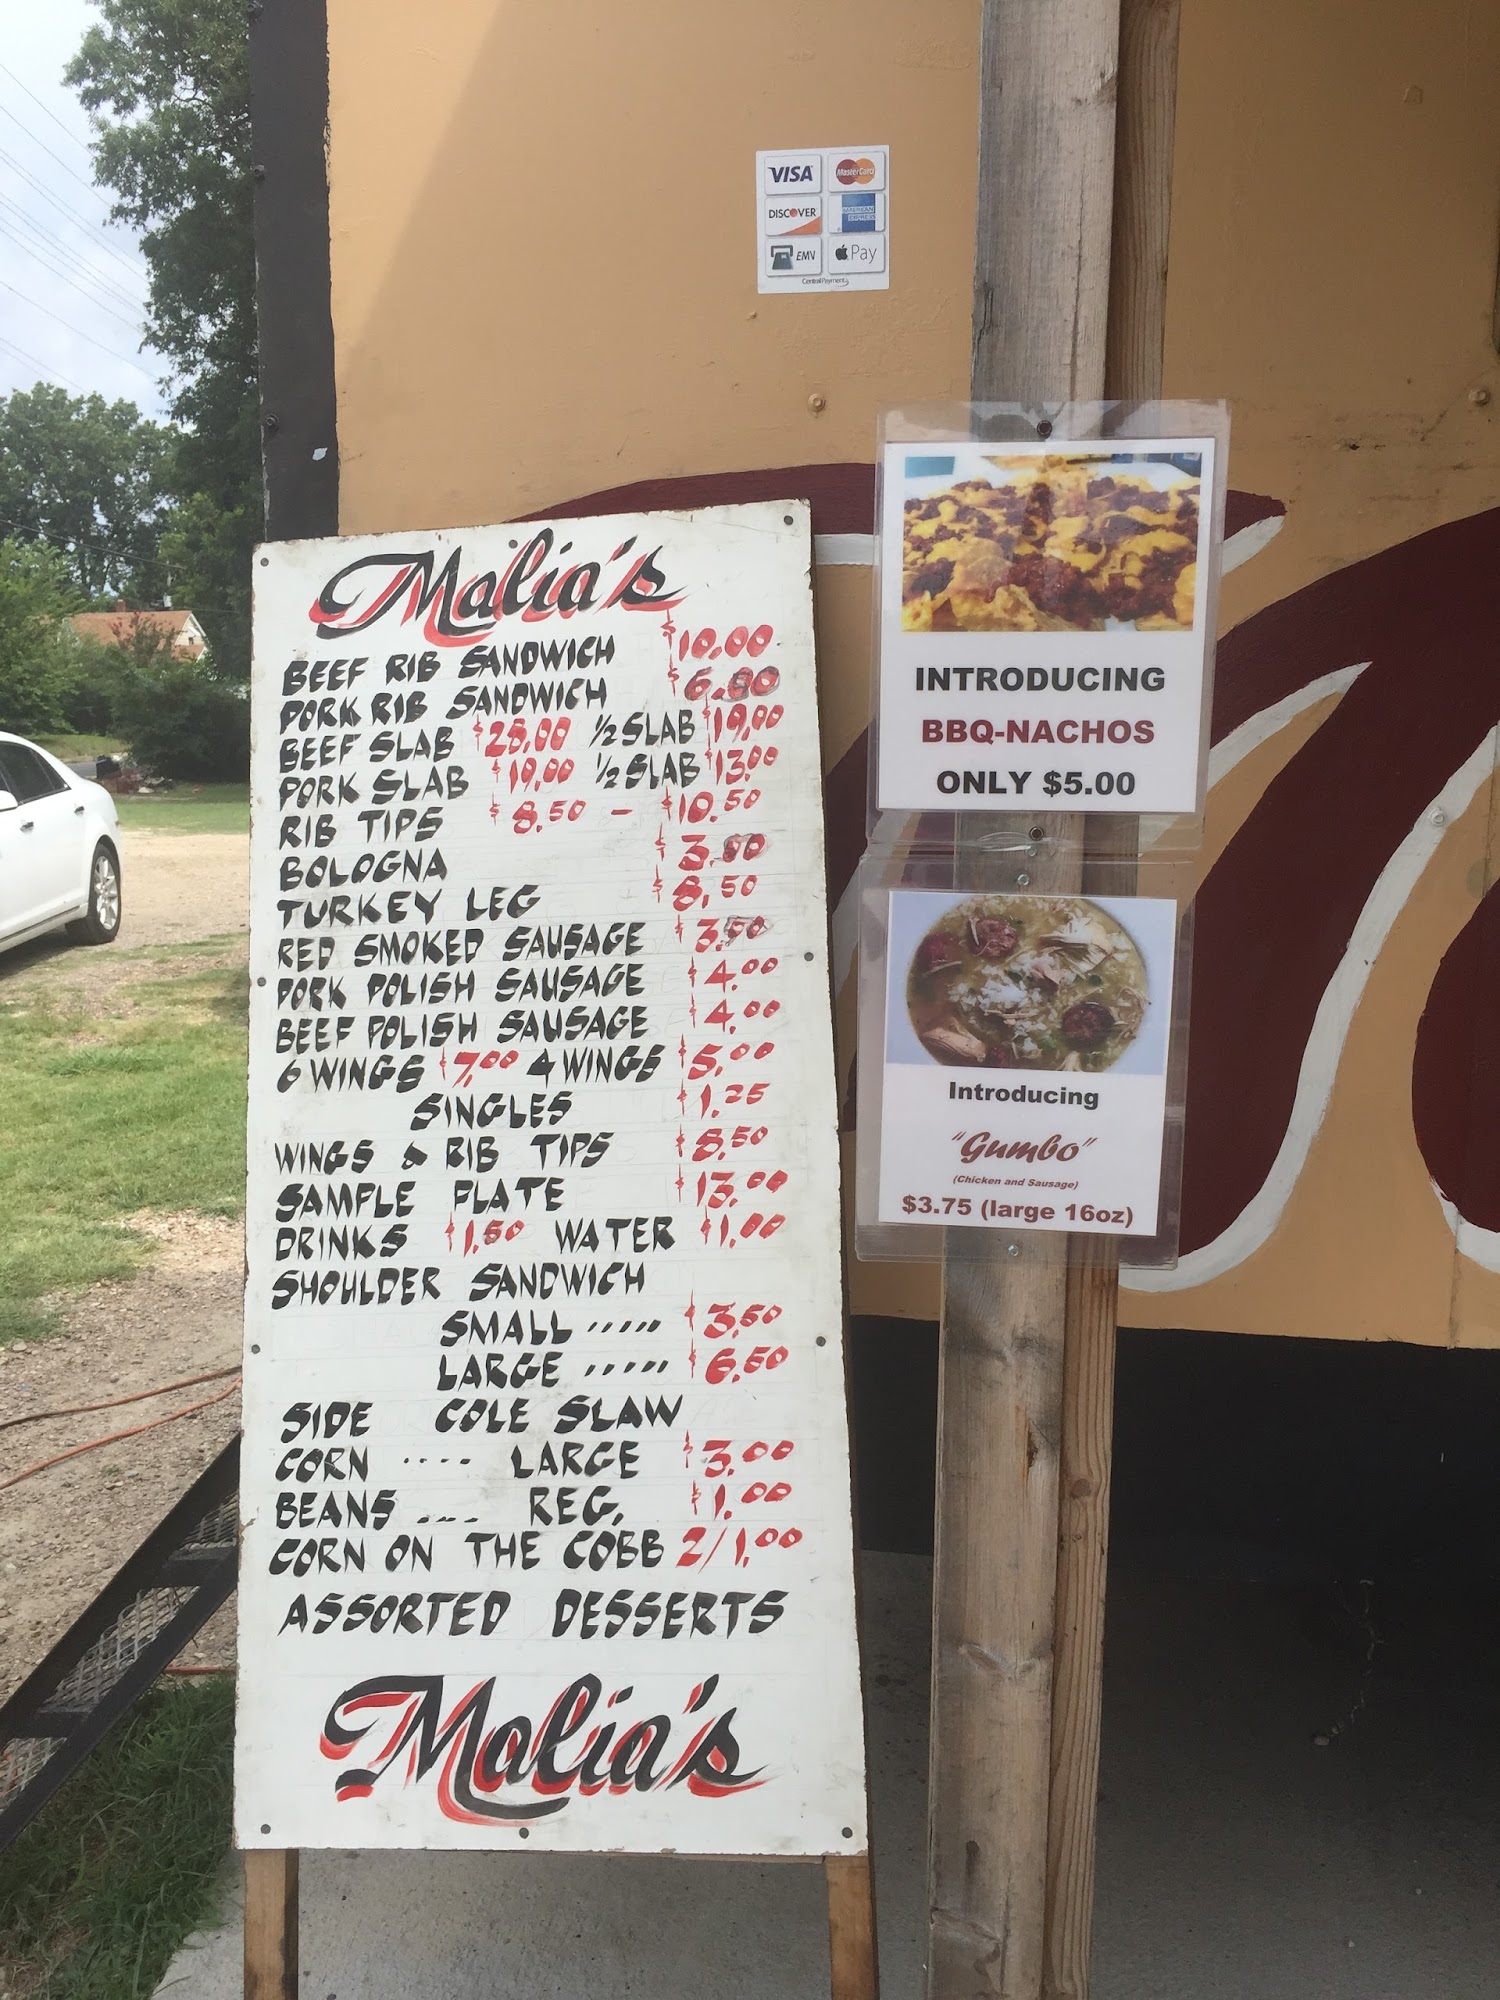 VISA MasterCard
DISCOVER AMERICAN EXPRESS
EMV Pay
CentralPayment
Malia's
BEEF RIB SANDWICH $10.00
PORK RIB SANDWICH $6.00
BEEF SLAB $28.00 1/2 SLAB $19.00
PORK SLAB $19.00 1/2 SLAB $13.00
RIB TIPS $8.50 - $10.50
BOLOGNA $3.50
TURKEY LEG $8.50
RED SMOKED SAUSAGE $3.50
PORK POLISH SAUSAGE $4.00
BEEF POLISH SAUSAGE $4.00
6 WINGS $7.00 4 WINGS $5.00
SINGLES $1.25
WINGS & RIB TIPS $8.50
SAMPLE PLATE $13.00
DRINKS $1.50 WATER $1.00
SHOULDER SANDWICH
SMALL ..... $3.50
LARGE ..... $6.50
SIDE COLE SLAW
CORN .... LARGE $3.00
BEANS .... REG. $1.00
CORN ON THE COBB 2/1.00
ASSORTED DESSERTS
Malia's
INTRODUCING
BBQ-NACHOS
ONLY $5.00
Introducing
"Gumbo"
(Chicken and Sausage)
$3.75 (large 16oz)